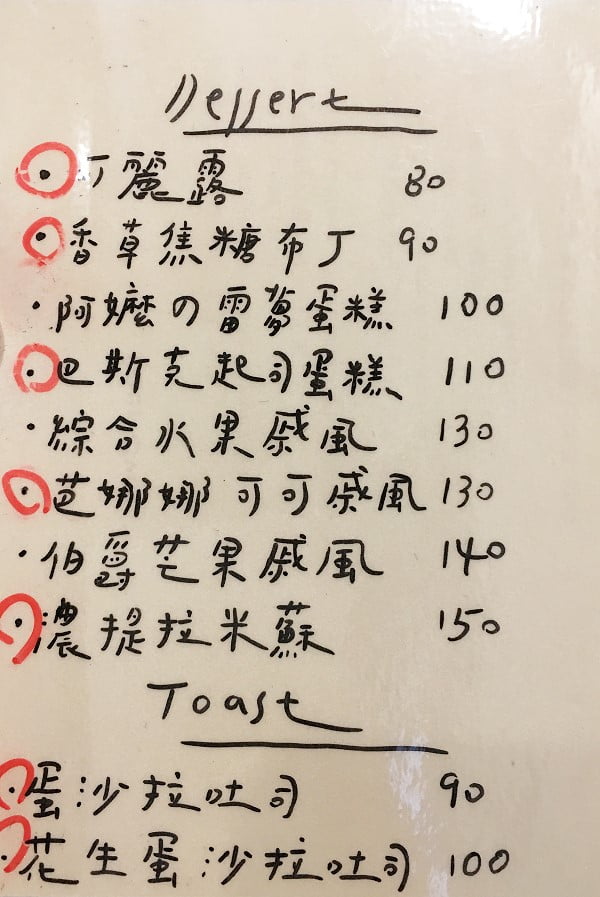 Dessert
·可麗露 80
·香草焦糖布丁 90
·阿嬤の雷夢蛋糕 100
·巴斯克起司蛋糕 110
·綜合水果戚風 130
·芭娜娜可可戚風 130
·伯爵芒果戚風 140
·濃提拉米蘇 150
Toast
·蛋沙拉吐司 90
·花生蛋沙拉吐司 100